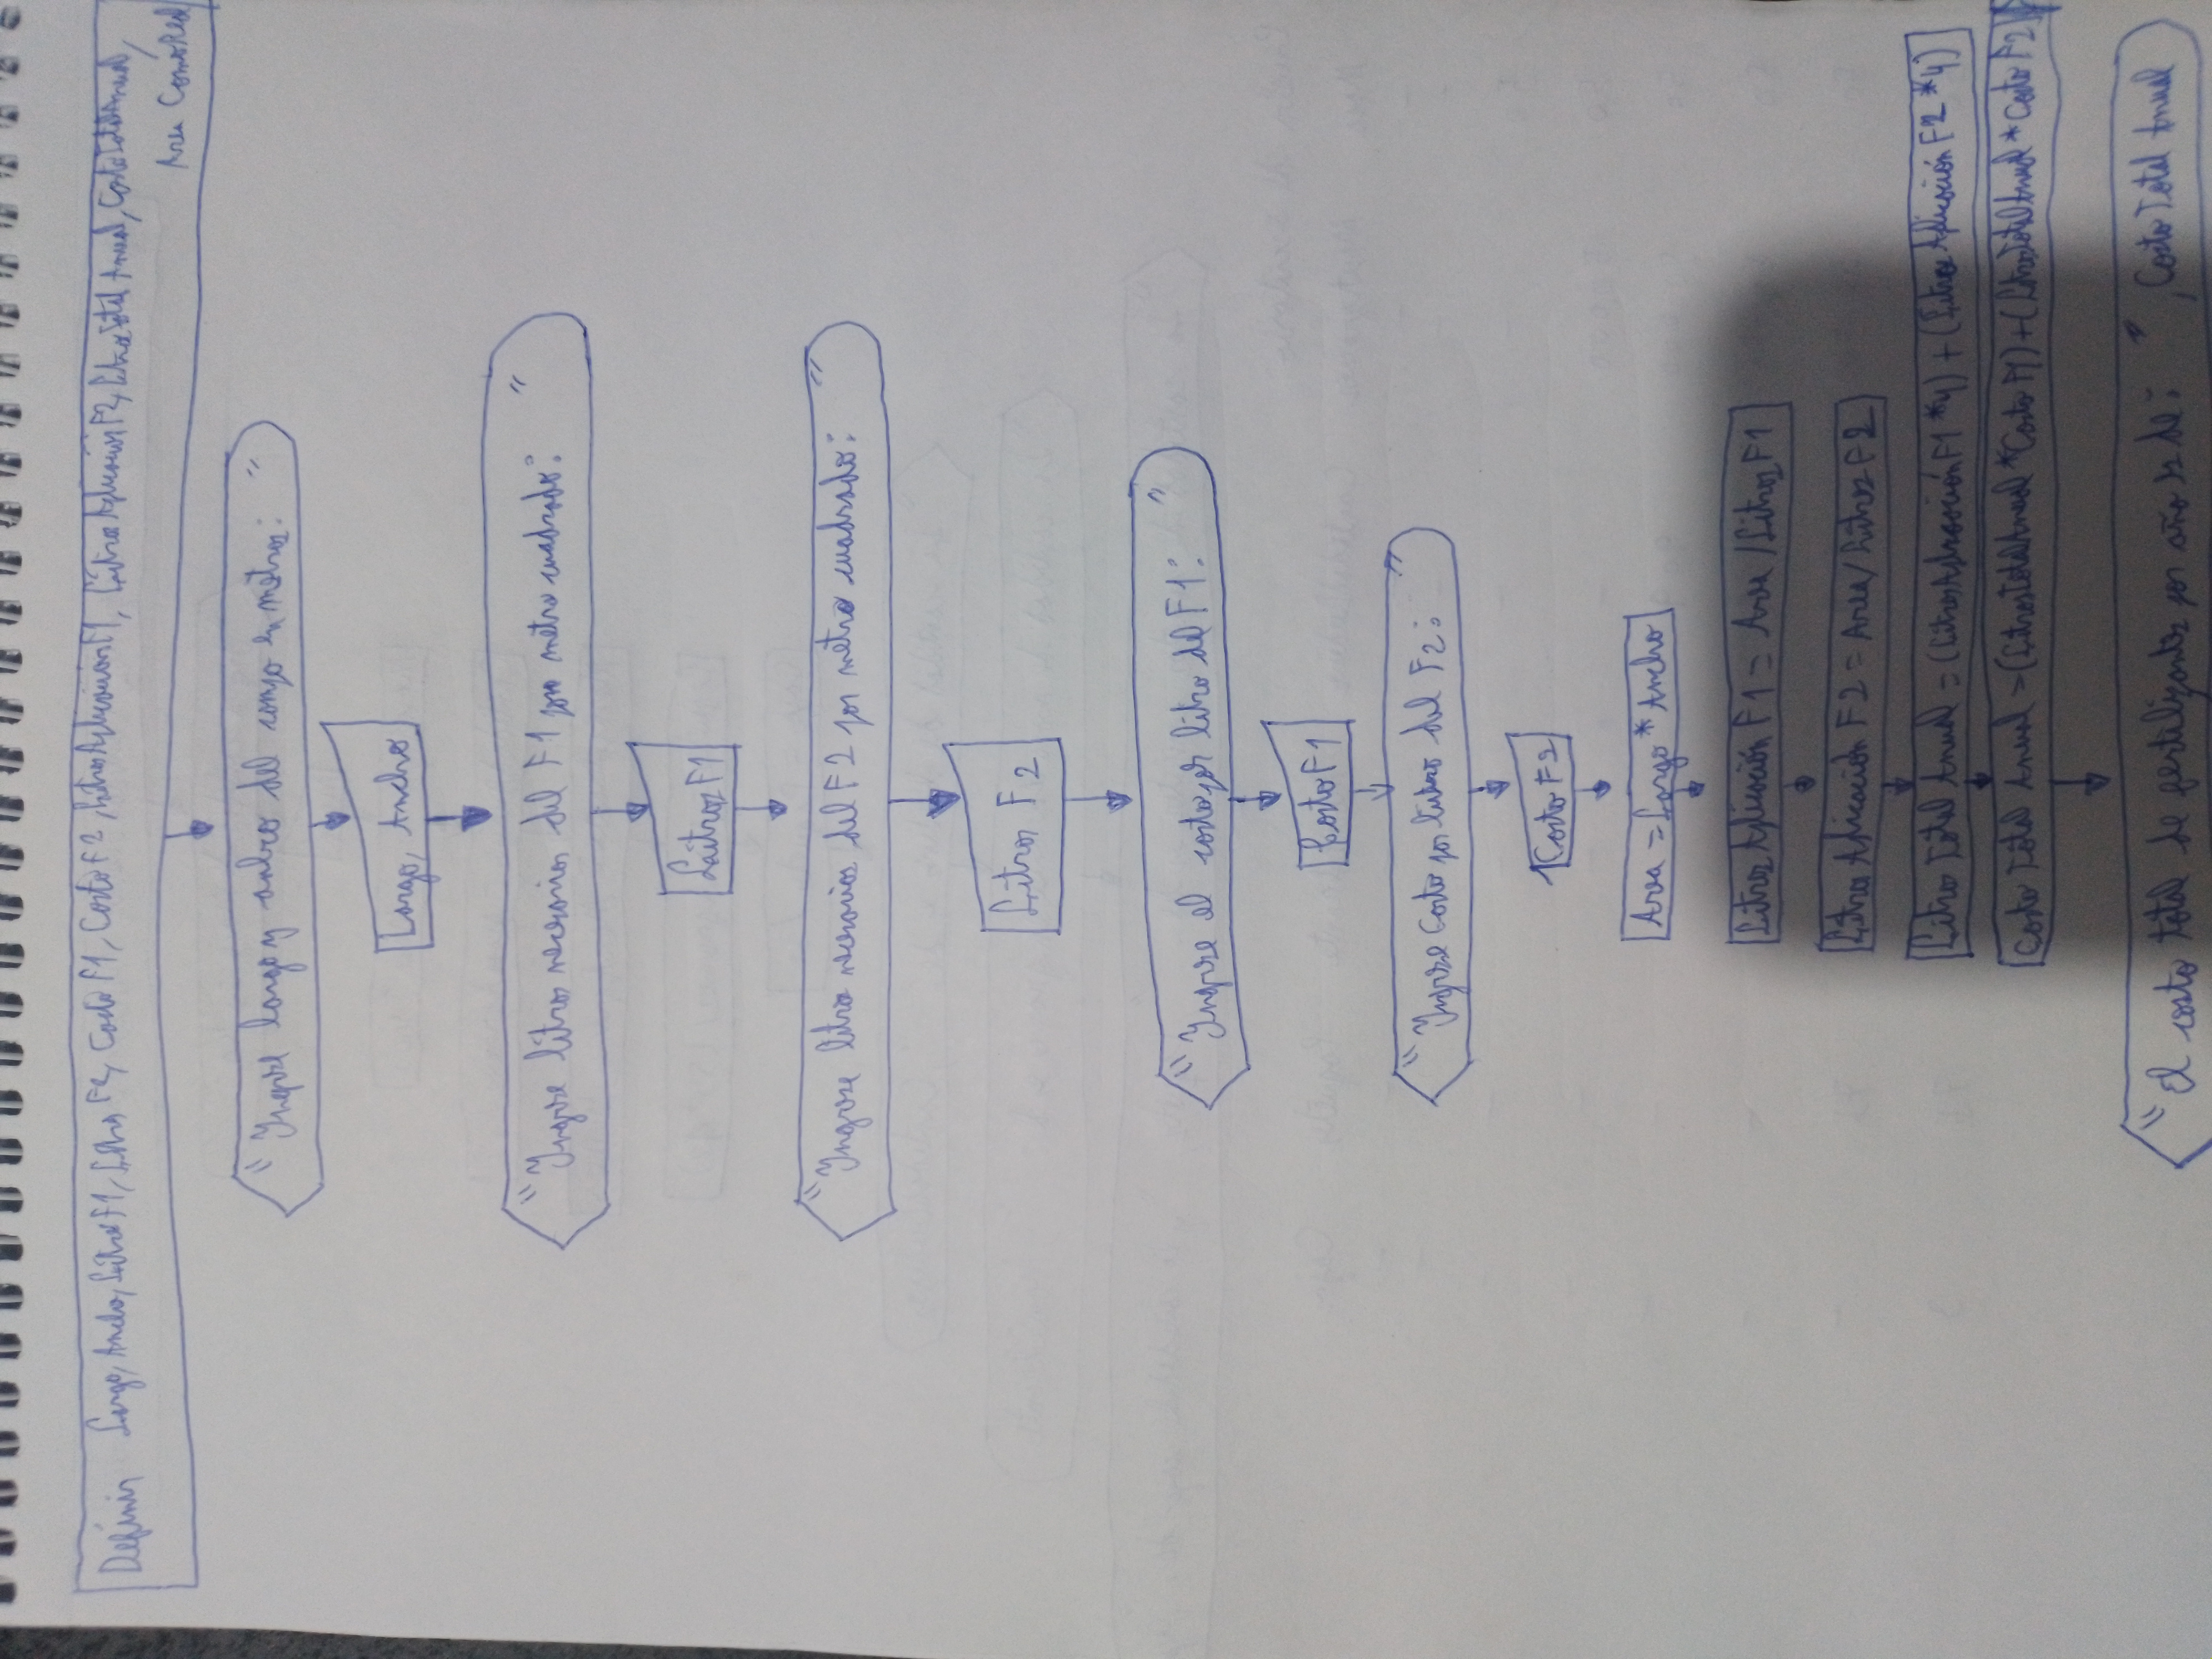 Definir Largo, Ancho, LitrosF1, Litros F2, Costo F1, Costo F2, LitrosAplicaciónF1, LitrosAplicaciónF2, LitrosTotal Anual, CostoTotalAnual,
Area Como Real
"Ingrese largo y ancho del campo en metros: "
Largo, Ancho
"Ingrese litros necesarios del F1 por metro cuadrado: "
Litros F1
"Ingrese litro necesarios del F2 por metro cuadrado: "
Litros F2
"Ingrese el costo por litro del F1: "
Costo F1
"Ingrese Costo por litro del F2: "
Costo F2
Area = Largo * Ancho
Litros Aplicación F1 = Area / Litros F1
Litros Aplicación F2 = Area / Litros F2
Litros Total Anual = (Litros Aplicación F1 * 4) + (Litros Aplicación F2 * 4)
Costo Total Anual = (LitrosTotalAnual * Costo F1) + (LitrosTotal Anual * Costo F2)
"El costo total de fertilizantes por año es de: ", Costo Total Anual